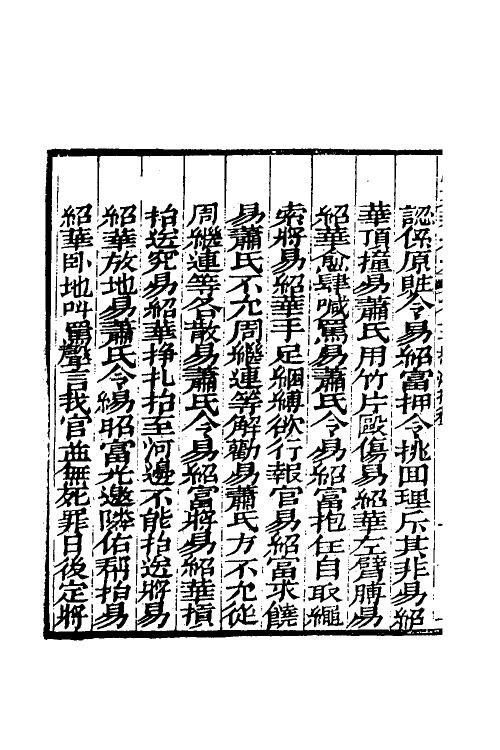 認係原賍令易紹富押令挑回理斥其非易紹
華頂撞易蕭氏用竹片毆傷易紹華左臂膊易
紹華愈肆喊罵易蕭氏令易紹富抱住自取繩
索將易紹華手足綑縛欲行報官易紹富求饒
易蕭氏不允周繼連等解勸易蕭氏方不允從
周繼連等各散易蕭氏令易紹富將易紹華損
抬送究易紹華挣扎抬至河邊不能抬送將易
紹華放地易蕭氏令易昭富先邀隣佑帮抬易
紹華卧地呌罵聲言我官並無死罪日後定將